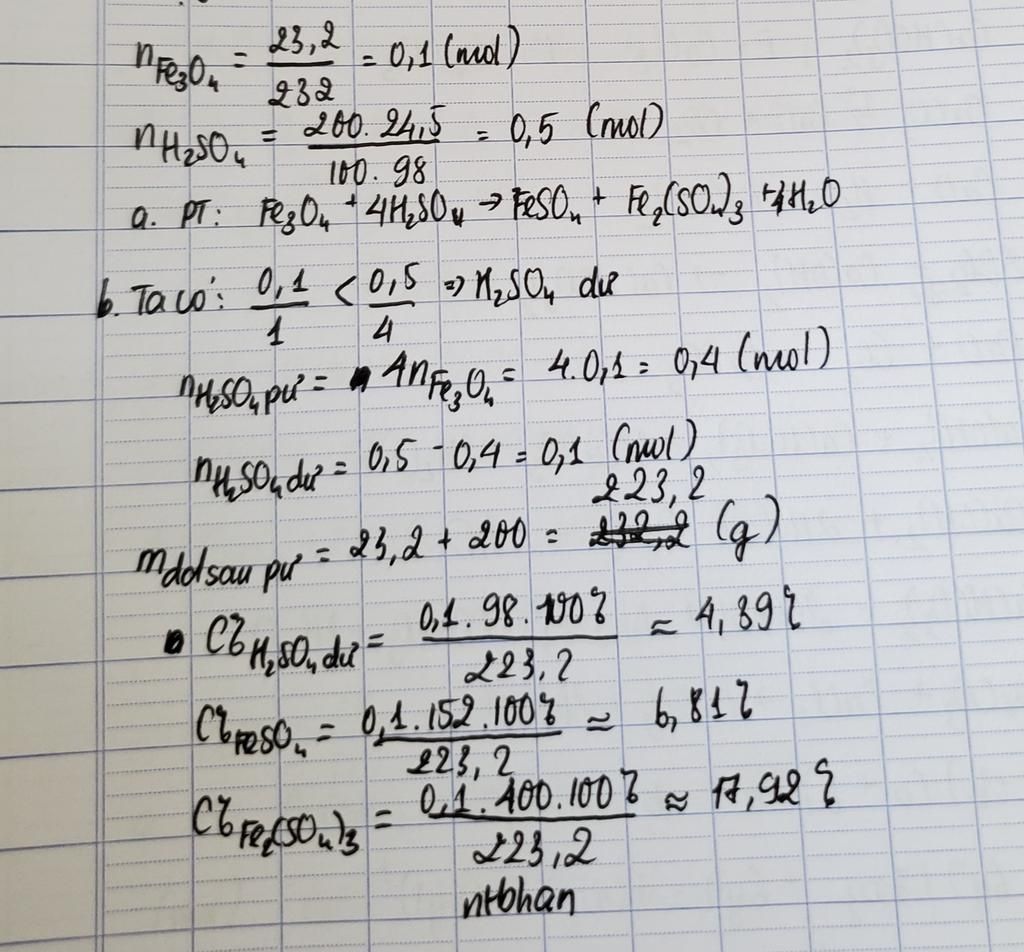 nFe₃O₄ = 23,2/232 = 0,1 (mol)
nH₂SO₄ = 200.24,5/100.98 = 0,5 (mol)
a. PT: Fe₃O₄ + 4H₂SO₄ → FeSO₄ + Fe₂(SO₄)₃ + 4H₂O
b. Ta có: 0,1/1 < 0,5/4 => H₂SO₄ dư
nH₂SO₄ pư = 4nFe₃O₄ = 4.0,1 = 0,4 (mol)
nH₂SO₄ dư = 0,5 - 0,4 = 0,1 (mol)
mdd sau pư = 23,2 + 200 = 223,2 (g)
C% H₂SO₄ dư = 0,1.98.100%/223,2 ≈ 4,39%
C% FeSO₄ = 0,1.152.100%/223,2 ≈ 6,81%
C% Fe₂(SO₄)₃ = 0,1.400.100%/223,2 ≈ 17,92%
nHbhan